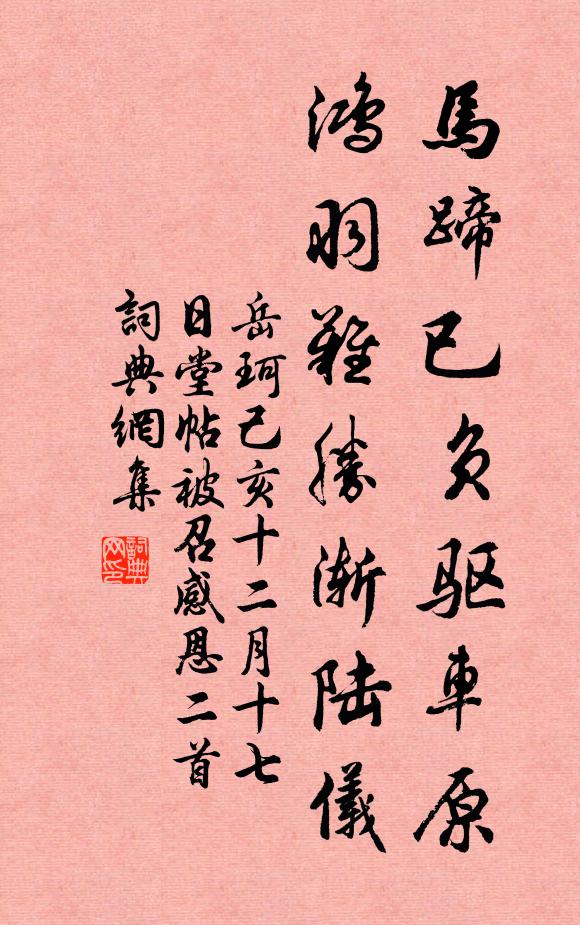 馬蹄已负驱車原
鴻羽難勝漸陆儀
岳珂己亥十二月十七
日堂帖被召感恩二首
詞典網集
詞典
网印